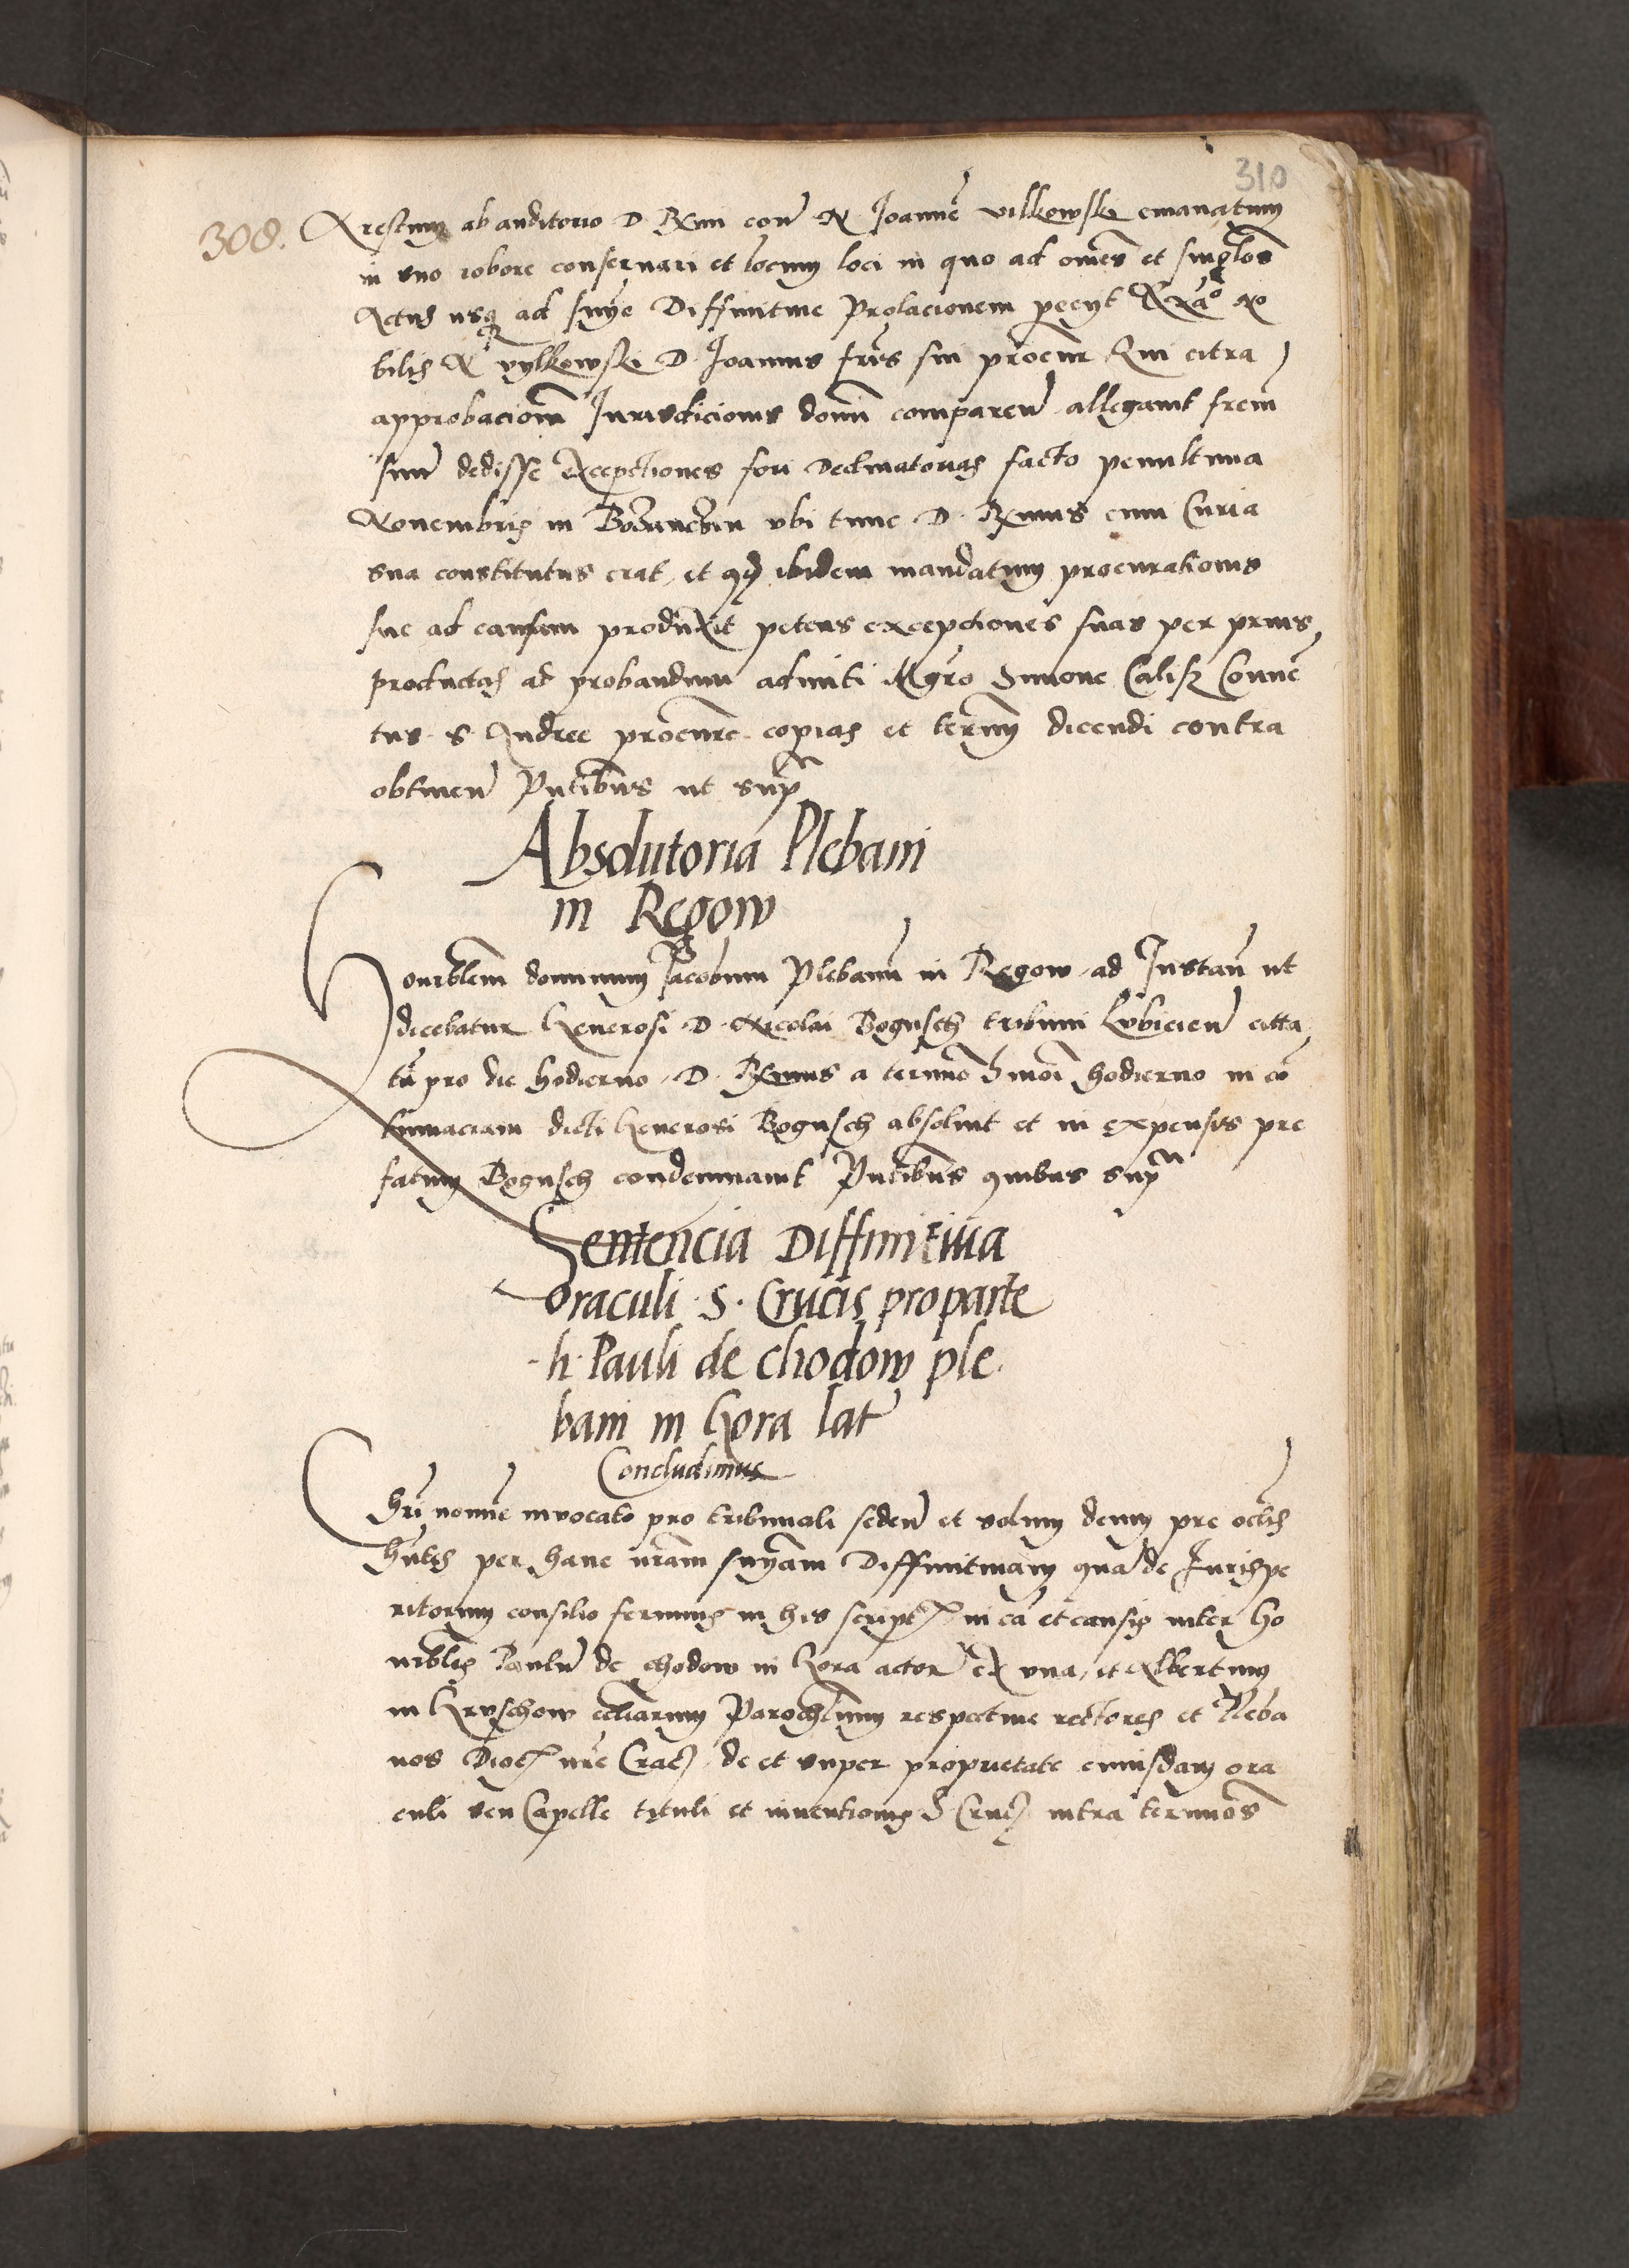 310
308. Arestum ab auditorio D Rmi con N Joanne vilkowski emanatum
in suo robore conseruari et locum loci in quo ad omes et singlos
Actus usq ad snye Diffinitiue Prolacionem pecyt No
bilis N vylkowski D. Joannis fris sui procur Qui citra
approbacionem Jurisdicionis domi comparen allegauit frem
suum dedisse exceptiones fori Declinatorias facto penultima
Nouembris in Bodzanczin vbi tunc D. Rmus cum Curia
sua constitutus erat, et ibidem mandatum procurationis
sue ad causam produxit petens exceptiones suas per prius
productas ad probandum admitti Mgro Simone Calisz Conue
tus S Andree procure copias et termm dicendi contra
obtinen Pntibus ut supr
Absolutoria Plebani
in Regow
Honrblem dominum Jacobum Plebanu in Regow ad Instan ut
dicebatur Generosi D. Nicolai Bogusch tribuni citta
tu pro die hodierno, D. Rmus a termino hmoi hodierno in co
tumaciam dicti Generosi Bogusch absoluit et in expensis pre
fatum Bogusch condemnauit Pntibus quibus supr
Sentencia Diffinitiua
oraculi S. Crucis pro parte
h. Pauli de chodow ple
bani in Gora lat
Concludimus
Chri nomine inuocato pro tribunali seden et solum deum pre oclis
hntes per hanc nram snyam Diffinitiuam qua de Jurispe
ritorum consilio ferimus in his script in ca et causis inter Ho
nrbles Paulu de chodow in Gora actor ex vna, et Albertum
in Gruschow ecclarum Parochlium respectiue rectores et Pleba
nos Dioc nre Crac, de et super proprietate cuiusdam ora
culi seu Capelle tituli et inuentionis S Cruc intra terminos